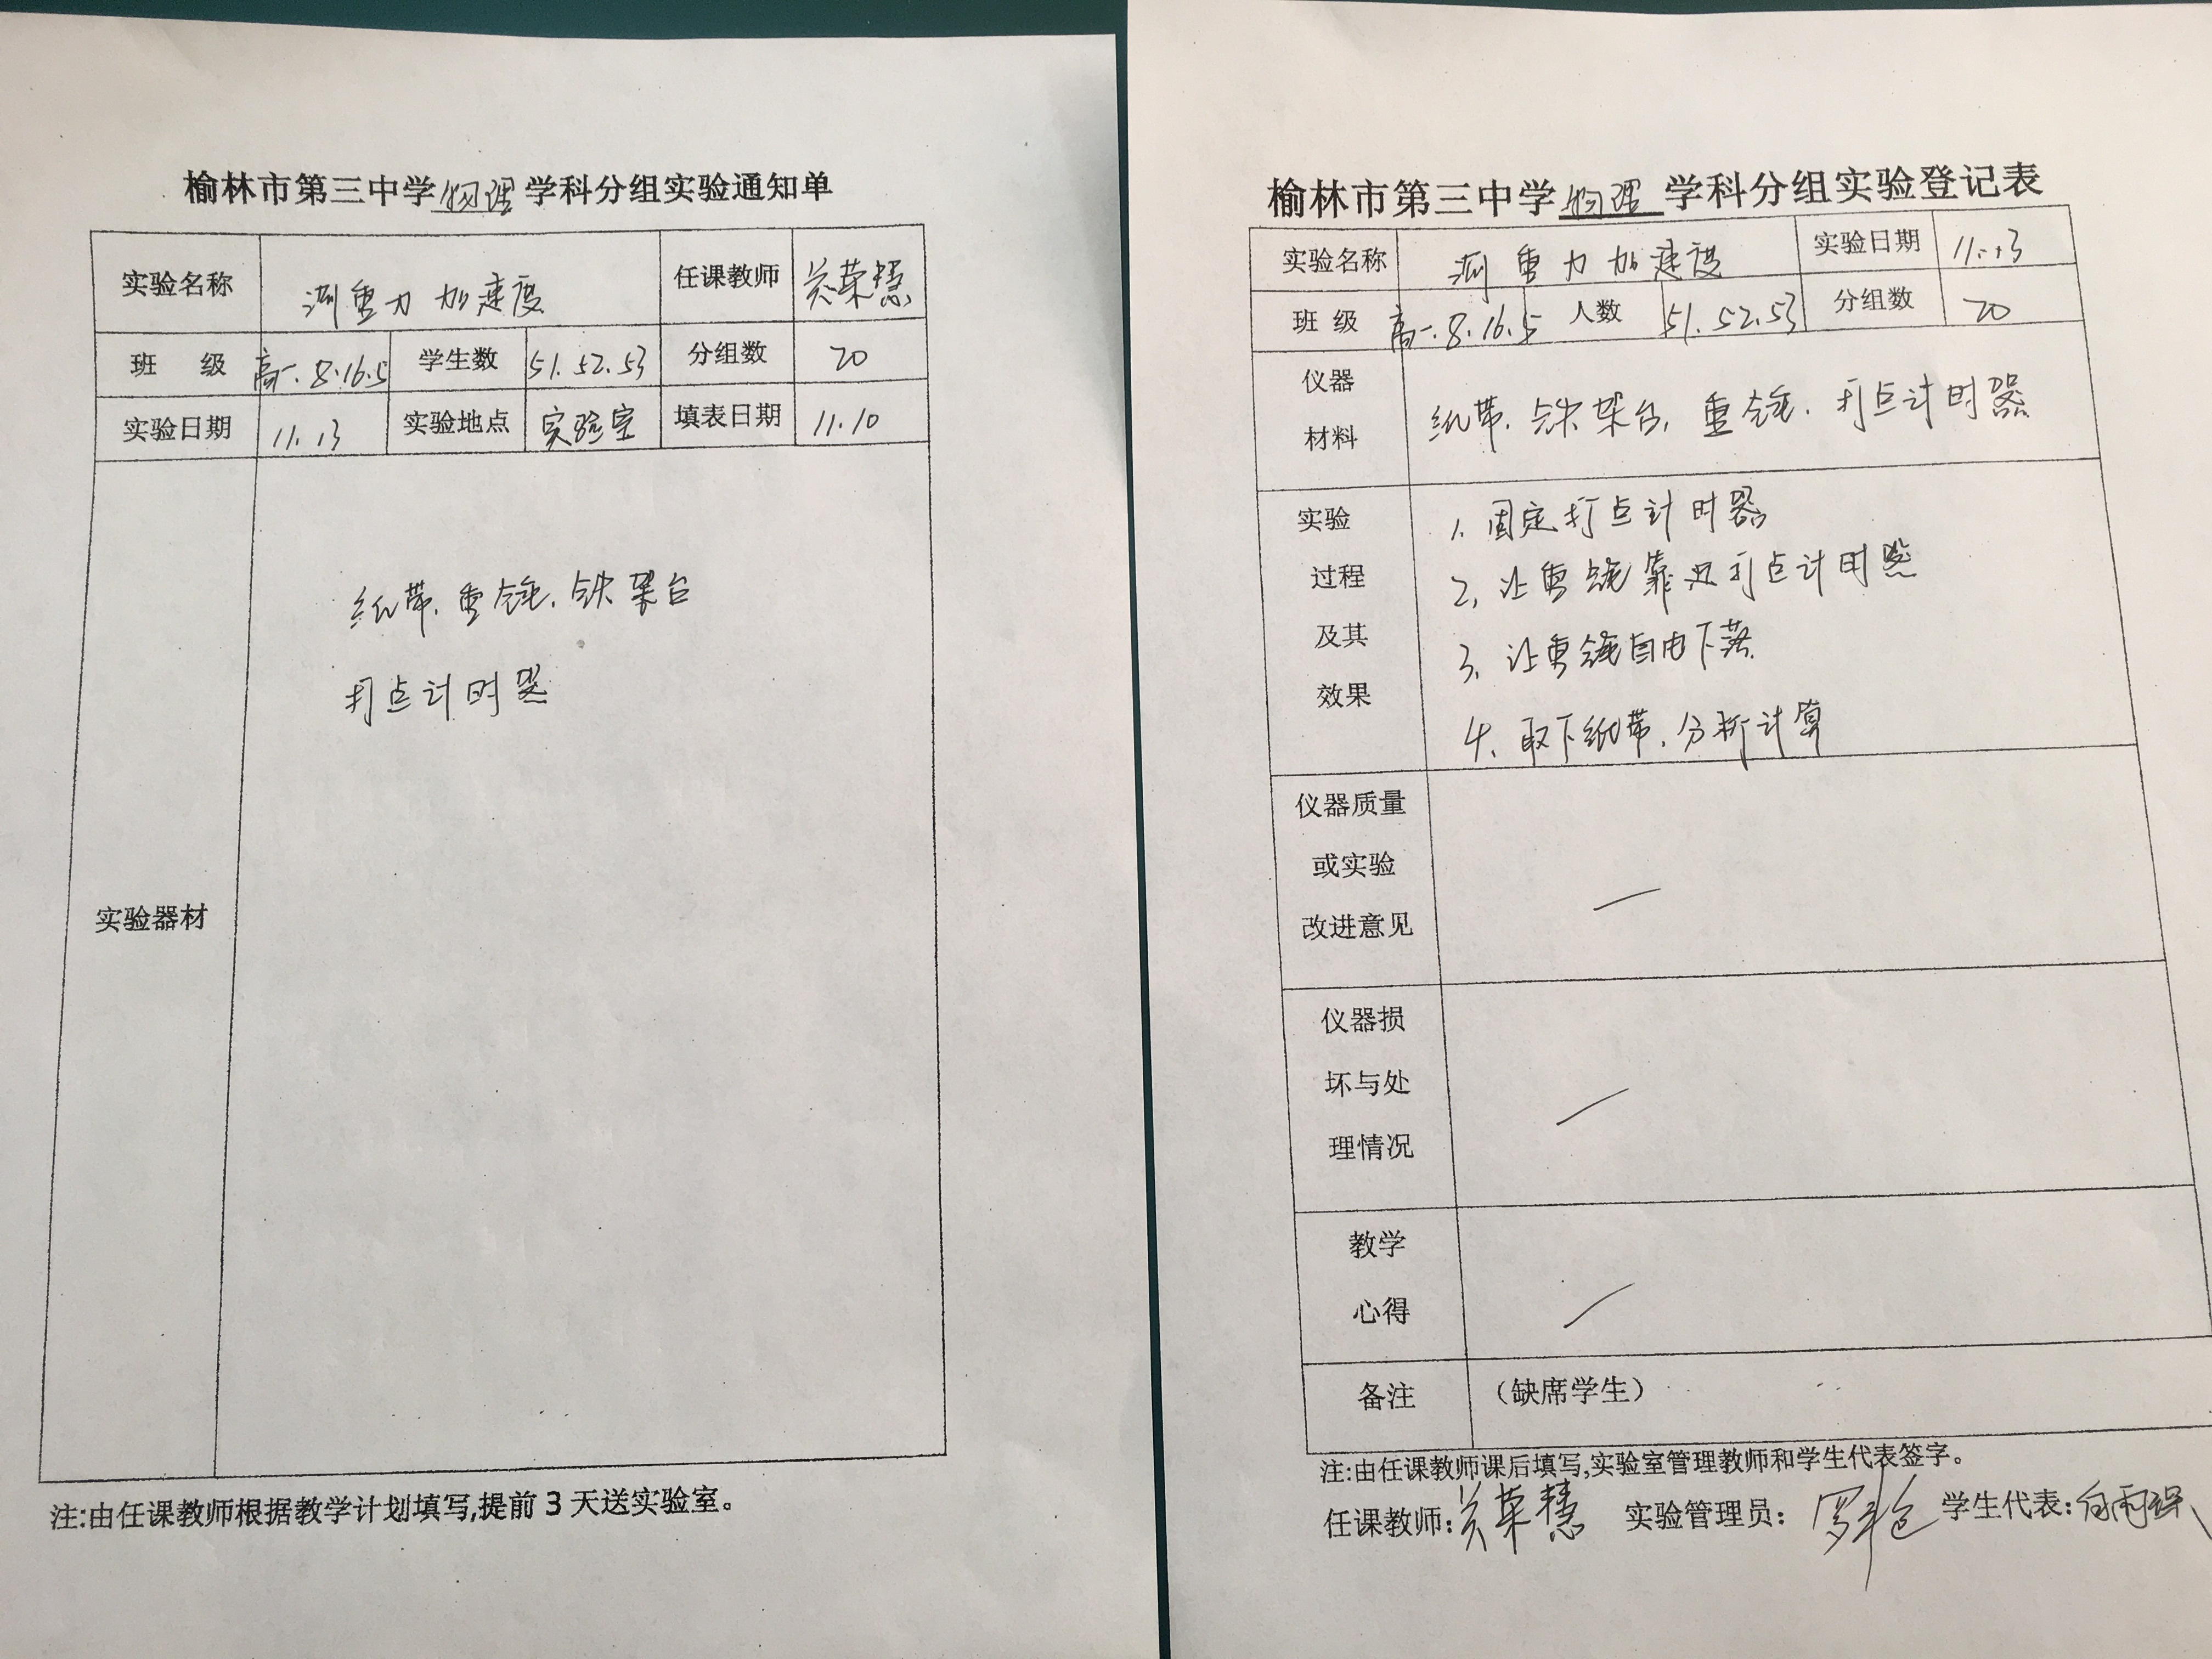 榆林市第三中学物理学科分组实验通知单
实验名称 测重力加速度 任课教师 荣慧
班 级 高一.8.16.5 学生数 51.52.53 分组数 20
实验日期 11.13 实验地点 实验室 填表日期 11.10
实验器材
纸带.重锤.铁架台
打点计时器
注:由任课教师根据教学计划填写,提前3天送实验室。
榆林市第三中学物理学科分组实验登记表
实验名称 测重力加速度 实验日期 11.13
班 级 高一.8.16.5 人数 51.52.53 分组数 20
仪器
材料
纸带.铁架台,重锤.打点计时器
实验
过程
及其
效果
1.固定打点计时器
2,让重锤靠近打点计时器
3、让重锤自由下落
4、取下纸带.分析计算
仪器质量
或实验
改进意见
仪器损
坏与处
理情况
教学
心得
备注 （缺席学生）
注:由任课教师课后填写,实验室管理教师和学生代表签字。
任课教师: 荣慧 实验管理员: 学生代表: